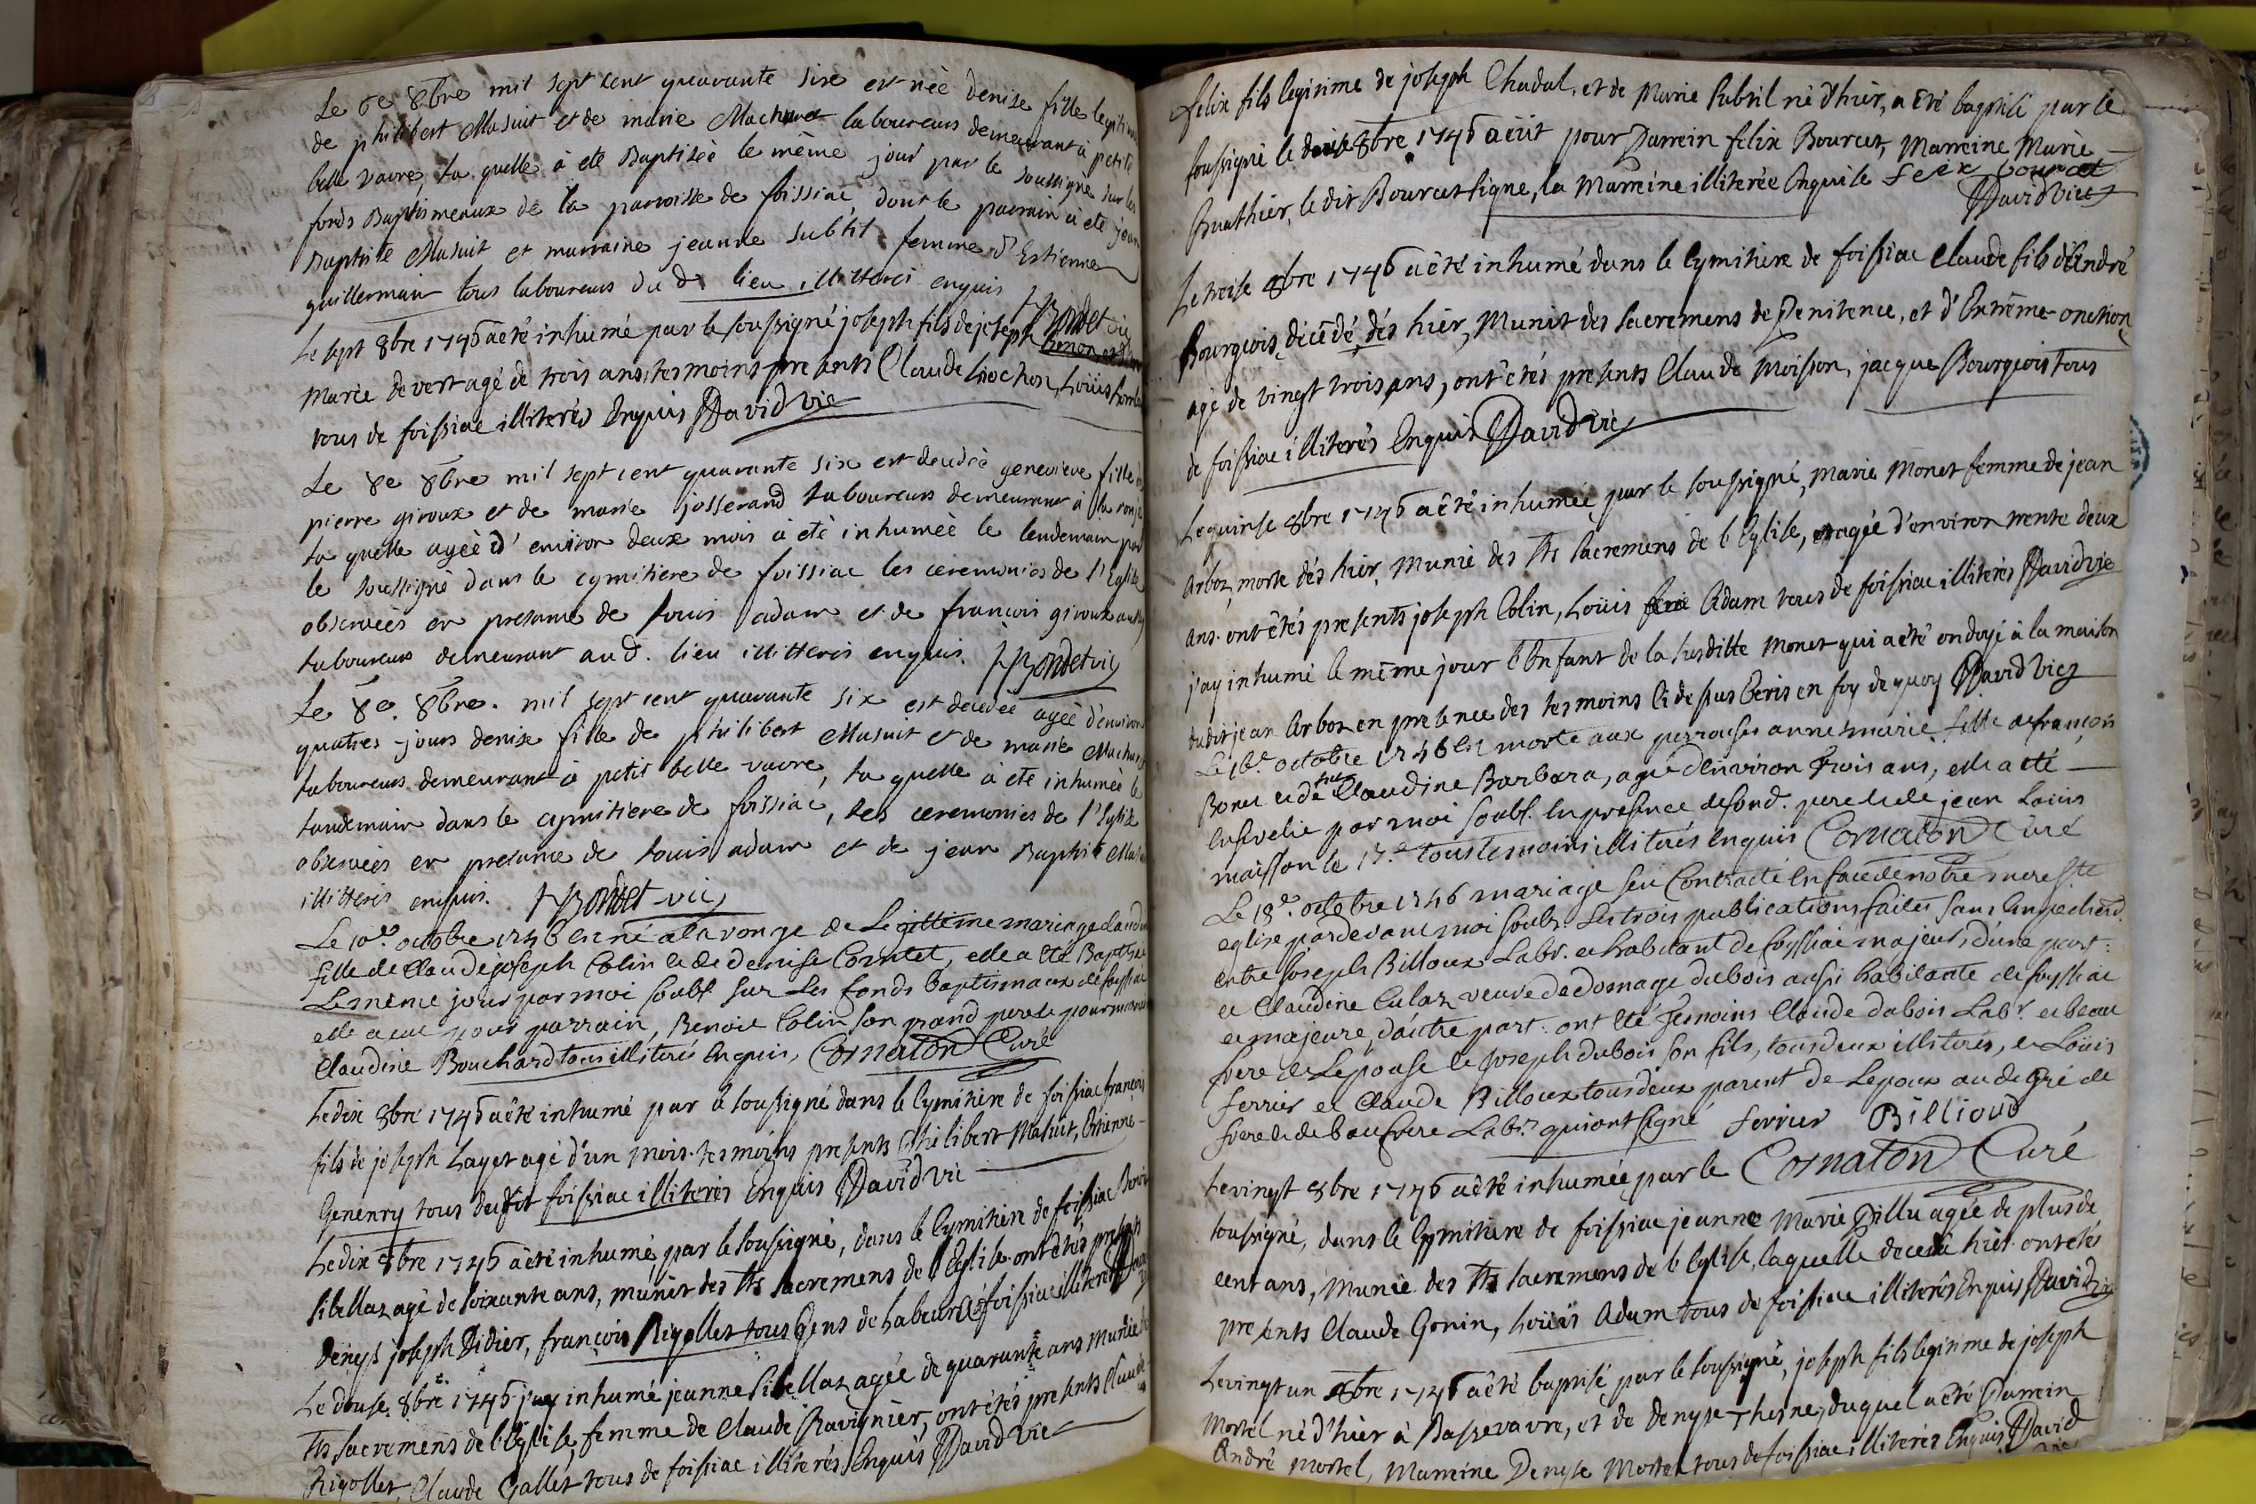 Le 6e 8bre mil sept cent quarante six est née denise fille legitime
de philibert Masuit et de marie Machuret laboureurs demeurant à petite
belle vavre, la quelle à eté Baptisèe le même jour par le soussigné sur les
fonds Baptismeaux de la paroisse de foissiac, dont le parrain a eté jean
Baptiste Masuit et marraine jeanne subtil femme d'Estienne
guillermain tous laboureurs du d. lieu illitteres enquis
H Bondet vic
Le sept 8bre 1746 a été inhumé par le soussigné joseph fils de joseph
Marie devert agé de trois ans, tesmoins presents Claude Louis
tous de foissiac illiterés Enquis David vic
Le 8e 8bre mil sept cent quarante six est decedèe genevieve fille de
pierre giroux et de marie josserand laboureurs demeurant à la ronge
la quelle agèe d'environ deux mois à eté inhumèe le lendemain par
le soussigné dans le cymitiere de foissiac les ceremonies de l'Eglise
observèes en presance de louis adam et de francois giroux
laboureurs demeurant au d. lieu illitteres enquis. H Bondet vic
Le 8e. 8bre. mil sept cent quarante six est decedèe agèe d'environ
quatres jours denise fille de philibert Masuit et de marie Machuret
laboureurs demeurant à petit belle vavre, la quelle à eté inhumèe le
landemain dans le cymitiere de foissiac, les ceremonies de l'Eglise
observèes en presance de louis adam et de jean Baptiste Masuit
illitteres enquis. H Bondet vic
Le 10e. octobre 1746 est né a la ronge de Legitteme mariage claudine
fille de Claude joseph Colin et de denise Comtet, elle a eté Baptisée
Le même jour par moi soubs. sur Les fonds baptismaux de foyssiac
elle a eue pour parrain, Benoit Colin son grand pere et pour marraine
Claudine Bouchard tous illiterés Enquis, Cornaton Curé
Le dix 8bre 1746 a été inhumé par le soussigné dans le Cymitiere de foissiac françois
fils de joseph Layet agé d'un mois. tesmoins presents Philibert Masuit, Etienne
Genenry tous dudit foissiac illiterés Enquis David vic
Le dix 8bre 1746 a été inhumé par le soussigné, dans le Cymitiere de foissiac
Sibellaz agé de soixante ans, munit des Sts sacremens de l'Eglise. ont étés presents
Denys joseph Didier, françois Rigollet tous Gens de labeur de foissiac illiterés
Le douse 8bre 1746 j'ay inhumé jeanne Sibellaz agée de quarante ans munie des
Sts sacremens de l'Eglise, femme de Claude Ravignier, ont étés presents Claude
Rigollet, Claude Gallet tous de foissiac illiterés Enquis David Vic
felix fils legitime de joseph Chadal, et de Marie Subtil né d'hier, a été baptisé par le
soussigné le 8bre 1746 a eüt pour Parrein felix Bourcet, Marreine Marie
Buathier, le dit Bourcet signe, la Marreine illiterée Enquise felix bourcet
David Vic
Le treise 8bre 1746 a été inhumé dans le Cymitiere de foissiac Claude fils d'André
Bourgeois, décédé dés hier, Munit des sacremens de Penitence, et d'Extrême-onction
agé de vingt trois ans, ont étés presents Claude Moisson, jacque Bourgeois tous
de foissiac illiterés Enquis David Vic
Le quinse 8bre 1746 a été inhumée par le soussigné, Marie Monet femme de jean
Arboz, morte dés hier, Munie des Sts sacremens de l'Eglise, agée d'environ trente deux
ans. ont étés presents joseph Colin, Louis Adam tous de foissiac illiterés David vic
j'ay inhumé le même jour l'Enfant de la susditte Monet qui a été ondoyé à la maison
dudit jean Arboz en presence des tesmoins ci de sus Ecris en foy de quoy David Vic
Le 16e. octobre 1746 est morte aux perrouses anne marie fille de françois
Bonet et de Claudine Barbara, agé d'environ trois ans, elle a été
Ensevelie par moi soubs. En presence de son d. pere et de jean Louis
maisson le 17.e tous tesmoins illiterés Enquis Cornaton Curé
Le 18e. octobre 1746 mariage feu Contracté En face de nostre mere Ste
eglise pardevant moi soubs. Les trois publications faites sans Empechemt.
entre Joseph Billoux Labr. et habitant de foyssiac majeur, d'une part:
et Claudine Culaz veuve de domage dubois aussi habitante de foyssiac
et majeure, d'autre part. ont eté Temoins Claude dubois Labr. et beau
frere de Lepouse et Joseph dubois son fils, tous deux illiterés, et Louis
ferrier et Claude Billoux tous deux parent de Lepoux au degré de
frere et de beaufrere Labrs. qui ont signé ferrier Billioud
Cornaton Curé
Le vingt 8bre 1746 a été inhumée par le
soussigné, dans le Cymitiere de foissiac jeanne Marie Pillu agée de plus de
cent ans, Munie des Sts sacremens de l'Eglise, laquelle decedâ hier. ont étés
presents Claude Gonin, Louis Adam tous de foissiac illiterés Enquis David vic
Le vingt un 8bre 1746 a été baptisé par le soussigné, joseph fils legitime de joseph
Mortel né d'hier à Bassevavre, et de Denyse Therne, duquel a été Parrein
André Mortel, Marreine Denyse Mortel tous de foissiac illiterés Enquis David
vic